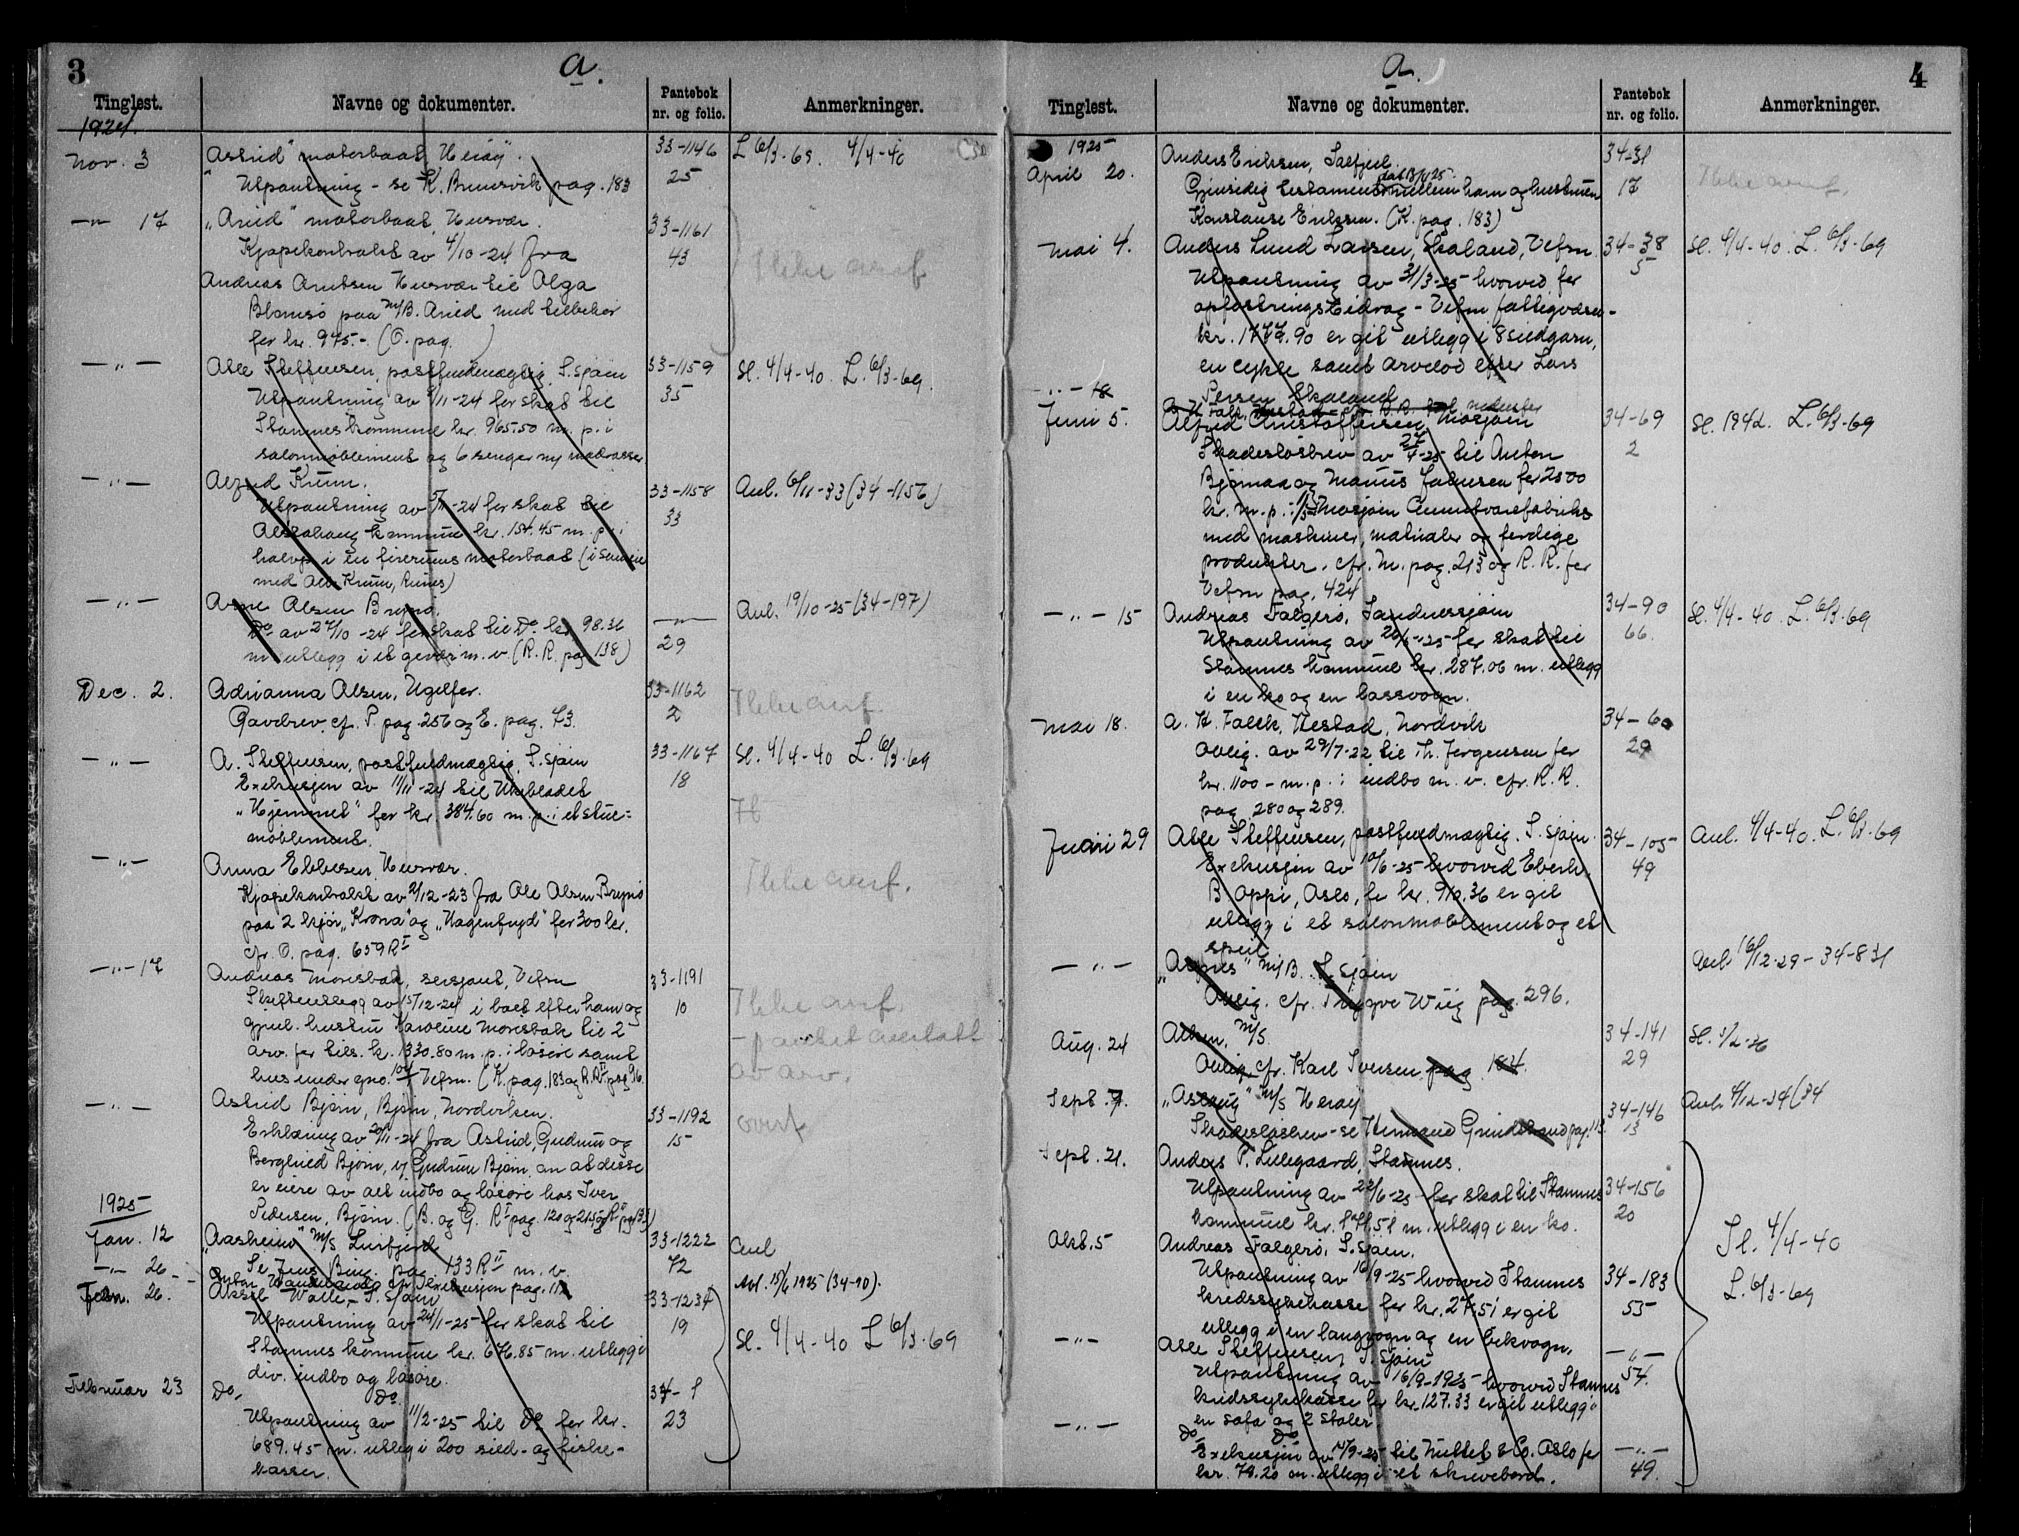 3
a.
Tinglest.
Navne og dokumenter.
Pantebok nr. og folio.
Anmerkninger.
1924.
Nov. 3
Astrid" motorbaat Herøy.
33-1146
L 6/3-69. 4/4-40
Utpantning - se K. Brunsvik pag. 183
25
—"— 17
"Arild" motorbaat, Husvær.
33-1161
Kjøpekontrakt av 4/10-24 fra
43
Ikke anf
Andreas Arntsen Husvær til Olga
Blomsø paa m/B. Arild med tilbehør
for kr. 945.- (O. pag. )
— " —
Atle Steffensen, postfuldmægtig, S.sjøen
33-1159
Sl. 4/4-40. L. 6/3-69.
Utpantning av /11-24 for skat til
35
Stamnes kommune kr. 965.50 m. p. i
salonmøblement og 6 senger m/ madrasser
— " —
Alfred Krum.
33-1158
Avl. 6/11-33 (34-1156)
Utpantning av 5/11-24 for skat til
33
Alstahaug kommune kr. 154.45 m. p. i
halvp. i en firerums motorbaat (i sameie
med Krum,
— " —
Arne Olsen Brynø.
Avl. 19/10-25 (34-197)
Do av 27/10-24 for skat til Do. kr. 98.36
—"—
m. utlegg i et gevær m. v. (R. R. pag 138)
29
Dec. 2.
Adrianna Olsen, Ugelfor.
33-1162
Ikke anf.
Gavebrev cf. P. pag. 256 og E. pag. 73.
2
— " —
A. Steffensen, postfuldmægtig, S.sjøen
33-1167
Sl. 4/4-40 L. 6/3-69
Exekusjon av 11/11-24 til Ukebladet
18
"Hjemmet" for kr. 384.60 m. p. i et stue=
møblement.
— " —
Anna Ebbesen, Husvær.
Kjøpekontrakt av 2/12-23 fra Ole Olsen Brynø
Ikke anf.
paa 2 kjør "Krona" og "Hagenfryd" for 300 kr.
cfr. O. pag. 659 R I
— " — 17
Andreas Moresbak, sersjant, Vefsn
33-1191
Skifteutlegg av 15/12-24 i boet efter ham og
10
Ikke anf.
gjenl. hustru Karoline Moresbak til 2
arv. for tils. k. 1330.80 m. p. i løsøre samt
hus under gno. Vefsn. (K. pag. 183 og R.R II pag 96.
av arv.
— " —
Astrid Bjørn, Bjørn, Nordviken.
33-1192
overf
Erklæring av 20/11-24 fra Astrid, Gudrun og
15
Berglied Bjørn, v/ Gudrun Bjørn, om at disse
er eiere av alt indbo og løsøre hos Iver
1925
Pedersen, Bjørn. (B. og G. R I pag. 120 og 215 og
Jan. 12
"Aasheim" m/S Leirfjord
33-1222
Avl
Se Jens Bing. pag. 133 R II m. v.
72
—"— 26.
Anton exekusjon pag. 11
Avl. 15/6 1925 (34-90).
Febr. 26.
Aksel Walle, S.sjøen
33-1234
Utpantning av 24/1-25 for skat til
19
Sl. 4/4-40 L 6/3-69
Stamnes kommune kr. 676.85 m. utlegg i
div. indbo og løsøre.
Februar 23
Do. Do.
34-1
Utpantning av 11/2-25 til Do for kr.
23
689.45 m. utlegg i 200 sild- og fiske-
kasser.
4
a.
Tinglest.
Navne og dokumenter.
Pantebok nr. og folio.
Anmerkninger.
1925
April 20.
Anders Eriksen, Sælfjell.
34-31
Gjensidig testament dat 13/4 25 mellem ham og hustruen
17
Ikke anf.
Konstanse Eriksen. (K. pag. 183)
Mai 4.
Anders Lund Larsen, Skaland, Vefsn
34-38
Sl. 4/4-40. L. 6/3-69
Utpantning av 31/3-25 hvorved for
5
opfostringsbidrag - Vefsn fattigvæsen -
kr. 1777.90 er git utlegg i 8 sildgarn,
en cykle samt arvelod efter Lars
Persen Skaland
— " — 18
Juni 5.
Alfred Christoffersen, Mosjøen
34-69
Sl. 1942. L. 6/3-69
Skadesløsbrev av 27/4-25 til Anton
2
Bjørnaa og Marius Johnsen for 2500
kr. m. p. i 1/3 Mosjøen Cementvarefabrik
med maskiner, materialer og ferdige
produkter. cfr. M. pag. 213 og R. R. for
Vefsn pag. 424
— " — 15
Andreas Falgerø, Sandnessjøen
34-90
Sl. 4/4-40. L. 6/3-69
Utpantning av 20/5-25 for skat til
66.
Stamnes kommune kr. 287.06 m. utlegg
i en ko og en lassvogn.
Mai 18.
A. H. Falck, Nestad, Nordvik
34-60
Oblig. av 29/7-22 til Th. Jørgensen for
29
kr. 1100 - m. p. i indbo m. v. cfr. R. R.
pag. 280 og 289.
Juni 29
Atle Steffensen, postfuldmægtig. S.sjøen.
34-105
Avl. 4/4-40. L. 6/3-69
Exekusjon av 10/6-25 hvorved Eberh.
49
B. Oppi, Oslo, for kr. 910.36 er git
utlegg i et salonmøblement og et
speil
— " —
"Agnes" m/B. S.sjøen
Avl. 16/12-29 - 34-831
Oblig. cfr. Trygve Wiig pag. 296.
Aug. 24
Alken, m/S
34-141
Sl. 3/2-26
Oblig. cfr. Karl Iversen pag. 184.
29
Sept. 7.
"Aslaug" m/S Herøy
34-146
Avl. 4/12-34 (34
Skadesløsbrev - se Hermand Grindstrand pag. 113.
13
Sept. 21.
Anders P. Lillegaard, Stamnes.
Utpantning av 22/6-25 for skat til Stamnes
34-156
kommune kr. 171.51 m. utlegg i en ko.
20
Okt. 5
Andreas Falgerø, S.sjøen.
Sl. 4/4-40
Utpantning av 16/9-25 hvorved Stamnes
34-183
L. 6/3-69
kredssykekasse for kr. 27.51 er git
55
utlegg i en langvogn og en trikvogn.
— " —
Atle Steffensen, S.sjøen
— " —
Utpantning av 16/9-1925 hvorved Stamnes
54.
kredssykekasse for kr. 127.33 er git utlegg i
en sofa og 2 stoler.
— " —
Do Do
Exekusjon av 14/9-25 til Mittet & Co. Oslo for
— " —
kr. 78.20 m. utlegg i et skrivebord.
49.